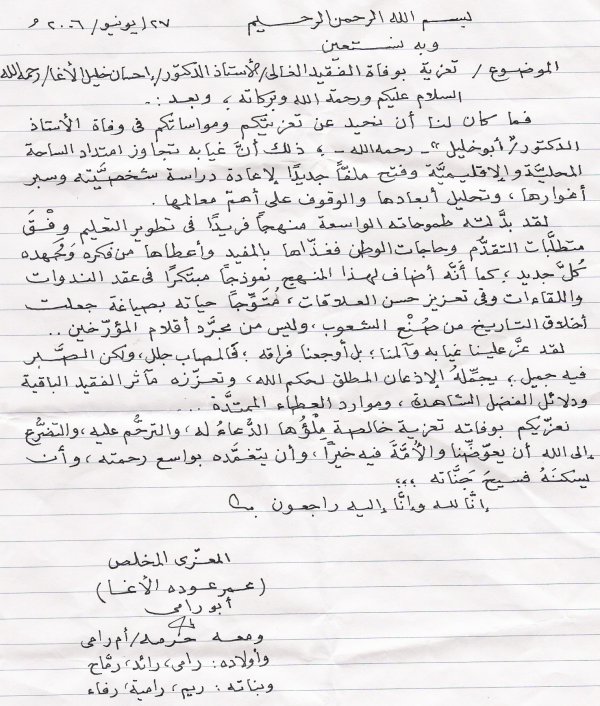 بسم الله الرحمن الرحيم ٢٧/يونيو/٢٠٠٦م
وبه نستعين
الموضوع/ تعزية بوفاة الفقيد الغالي/الأستاذ الدكتور/إحسان خليل الأغا/رحمه الله
السلام عليكم ورحمة الله وبركاته، وبعد:-
فما كان لنا أن نحيد عن تعزيتكم ومواساتكم في وفاة الأستاذ
الدكتور/"أبو خليل" - رحمه الله - ؛ ذلك أنَّ غيابه تجاوز امتداد الساحة
المحليَّة والإقليميَّة وفتح ملفَّاً جديدًا لإعادة دراسة شخصيَّته وسبر
أغوارها، وتحليل أبعادها والوقوف على أهمّ معالمها.
لقد بدَّلت طموحاته الواسعة منهجاً فريدًا في تطوير التعليم وِفْقَ
متطلَّبات التقدُّم وحاجات الوطن فغذَّاها بالمفيد وأعطاها من فكره وجُهده
كُلَّ جديد، كما أنَّه أضاف لهذا المنهج نموذجاً مبتكرًا في عقد الندوات
واللقاءات وفي تعزيز حسن العلاقات، مُتَوِّجاً حياته بصياغة جعلت
أخلاق التاريخ من صُنْع الشعوب، وليس من مجرَّد أقلام المؤرّخين..
لقد عزَّ علينا غيابه وآلمنا، بل أوجعنا فراقه؛ فالمصاب جلل، ولكن الصَّبر
فيه جميل؛ يجمِّلهُ الإذعان المطلق لحكم الله، وتعزّزه مآثر الفقيد الباقية
ودلائل الفضل الشاهدة، وموارد العطاء الممتدَّة ....
نعزّيكم بوفاته تعزية خالصة مِلْؤُها الدُّعاءُ له، والترحُّم عليه، والتضرُّع
إلى الله أن يعوّضنا والأمَّةَ فيه خيرًا، وأن يتغمَّده بواسع رحمته، وأن
يسكنَهُ فسيحَ جَنَّاته ،،،
إنَّا لله وإنَّا إليه راجعون
المعزّي المخلص
(عمر عوده الأغا)
أبو رامي
ومعه حرمه/أم رامي
وأولاده: رامي، رائد، رمَّاح
وبناته: ريم، رامية، رفاء